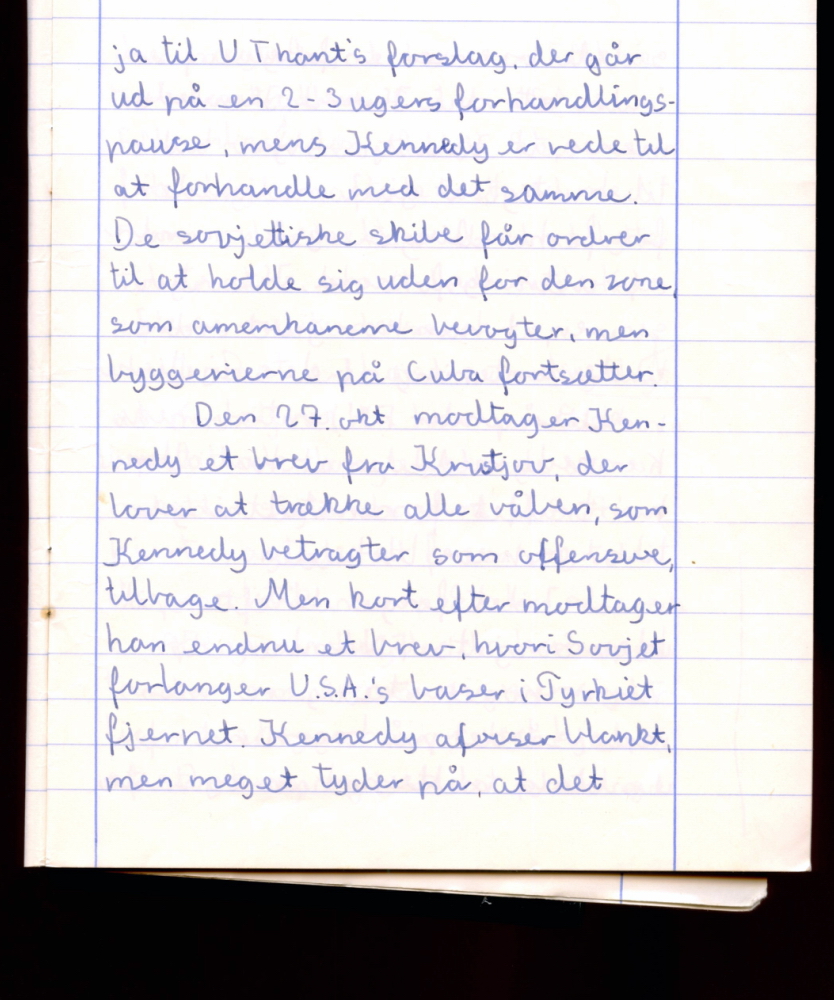 ja til U Thant's forslag, der går
ud på en 2-3 ugers forhandlings-
pause, mens Kennedy er rede til
at forhandle med det samme.
De sovjettiske skibe får ordrer
til at holde sig uden for den zone,
som amerikanerne bevogter, men
byggerierne på Cuba fortsætter.
Den 27. okt modtager Ken-
nedy et brev fra Krustjov, der
lover at trække alle våben, som
Kennedy betragter som offensive,
tilbage. Men kort efter modtager
han endnu et brev, hvori Sovjet
forlanger U.S.A.'s baser i Tyrkiet
fjernet. Kennedy afviser blankt,
men meget tyder på, at det